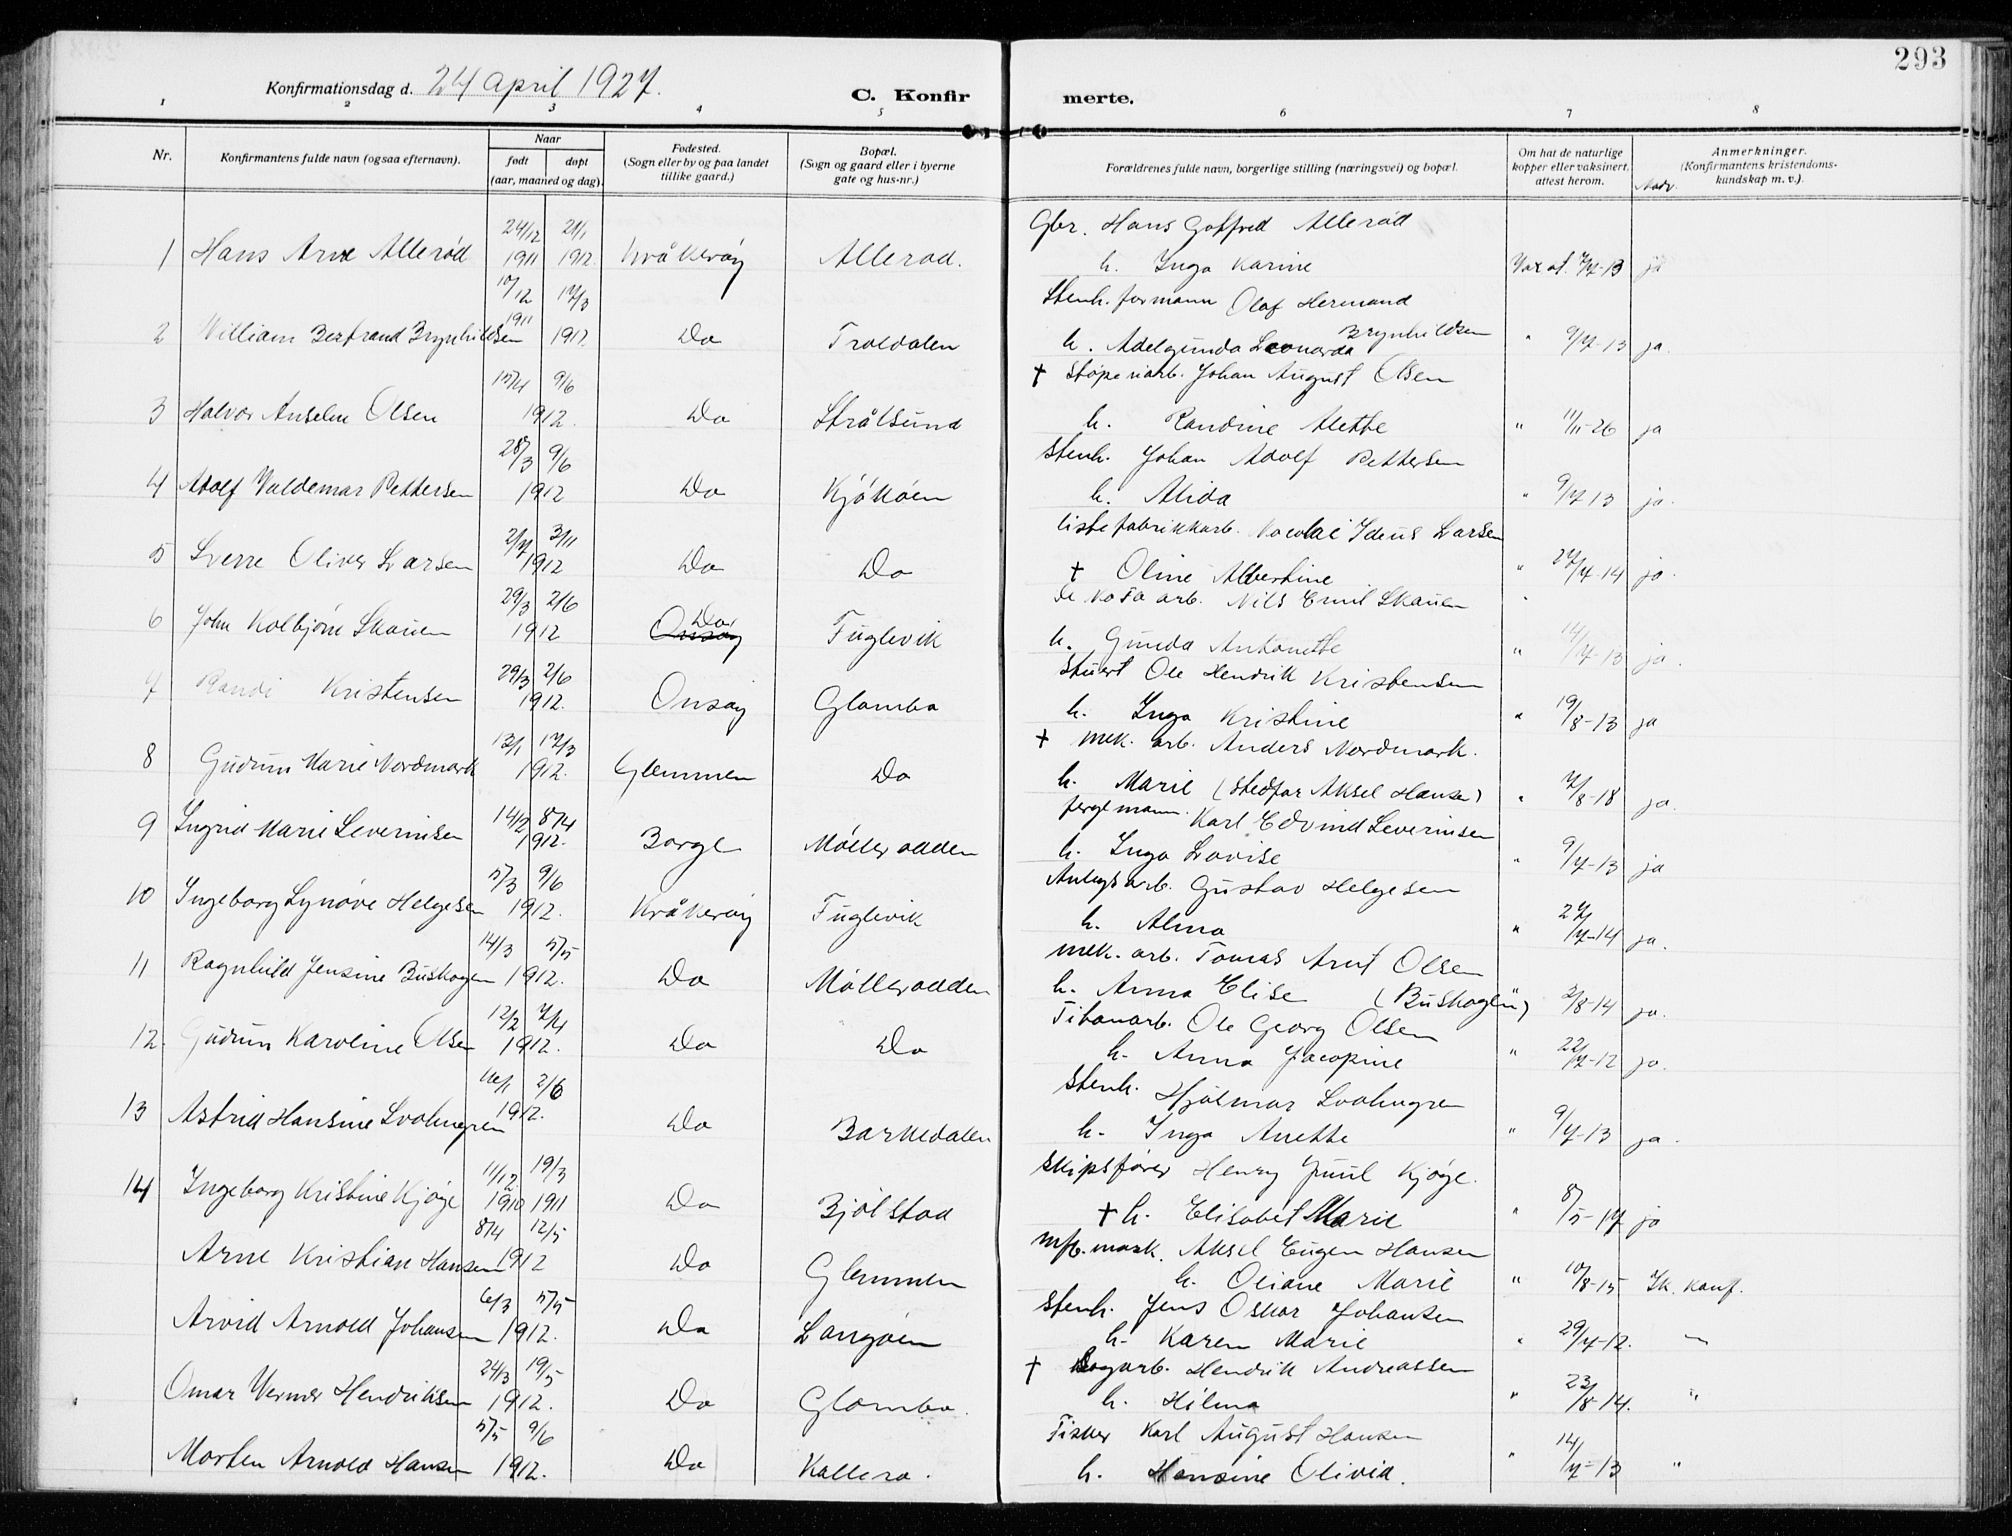 293
Konfirmationsdag d. 24 april 1927.
C. Konfirmerte.
1 2 3 4 5 6 7 8
Nr.
Konfirmantens fulde navn (ogsaa efternavn).
Naar
født døpt
(aar, maaned og dag).
Fødested.
(Sogn eller by og paa landet
tillike gaard.)
Bopæl.
(Sogn og gaard eller i byerne
gate og hus-nr.)
Forældrenes fulde navn, borgerlige stilling (næringsvei) og bopæl.
Om hat de naturlige
kopper eller vaksinert,
attest herom.
Anmerkninger.
(Konfirmantens kristendoms-
kundskap m. v.).
Nadv.
24/12 21/1 Gbr. Hans Gotfred Allerød
1 Hans Arve Allerød 1911 1912. Kråkerøy Allerød. h. Inga Karine Vax at. 7/7-13 ja
10/12 17/3 Stenh. formann Olaf Hermand
1911 Brynhildsen
2 William Bertrand Brynhildsen 1912 Do Troldalen h. Adelgunda Leonarda " 9/7-13 ja.
15/4 9/6 † Støperiarb. Johan August Olsen
3 Halvor Anselm Olsen 1912. Do Strålsund h. Randine Alette " 11/11-26 ja
28/3 9/6 Stenh. Johan Adolf Pettersen
4 Adolf Valdemar Pettersen 1912 Do Kjøkøen h. Alida " 9/7 13 ja.
2/7 3/11 Listefabrikkarb. Nicolai Ideus Larsen
5 Sverre Oliver Larsen 1912 Do Do † Oline Albertine " 27/7-14 ja.
29/3 2/6 De No Fa arb. Nils Emil Skauen
6 John Kolbjørn Skauen 1912 Onsøy Do Fuglevik h. Gunda Antonette " 14/7-13 ja.
29/3 2/6 Stuert Ole Hendrik Kristensen
7 Randi Kristensen 1912. Onsøy Glombo h. Inga Kristine " 19/8-13 ja
13/1 17/3 † mek. arb. Anders Nordmark.
8 Gudrun Marie Nordmark 1912. Glemmen Do h. Marie (stedfar Aksel Hansen) " 7/8-18 ja.
14/2 8/4 fergemann. Karl Edvind Severinsen
9 Ingrid Marie Severinsen 1912. Borge Møllerodden h. Inga Lovise " 9/7-13 ja
5/3 9/6 Anlegsarb. Gustav Helgesen
10 Ingeborg Synøve Helgesen 1912. Kråkerøy Fuglevik h. Alma " 27/7-14 ja.
14/3 5/5 mek. arb. Tomas Arnt Olsen
11 Ragnhild Jensine Buskogen 1912. Do Møllerodden h. Anna Elise (Buskogen) " 3/8-14 ja.
12/2 7/4 Titanarb. Ole Georg Olsen
12 Gudrun Karoline Olsen 1912. Do Do h. Anna Jacopine " 22/7-12 ja.
16/1 2/6 Stenh. Hjalmar Svalmgren
13 Astrid Hansine Svalmgren 1912. Do Barkedalen h. Inga Anette " 9/7-13 ja.
11/12 19/3 Skipsfører Henry Juul Kjøge.
14 Ingeborg Kristine Kjøge 1910 1911 Do Bjølstad † h. Elisabet Marie " 8/5-17 ja
8/4 12/5 mask. Aksel Eugen Hansen
Arne Kristian Hansen 1912 Do Glemmen h. Oliane Marie " 10/8-15 Ik. konf.
6/3 5/5 Stenh. Jens Oskar Johansen
Arvid Arnold Johansen 1912. Do Langøen h. Karen Marie " 29/7-12. "
24/3 19/5 † Hendrik Andreassen
Omar Verner Hendriksen 1912. Do Glombo. h. Hilma " 23/8-14. "
5/5 9/6 Fisker Karl August Hansen
Morten Arnold Hansen 1912. Do Kallerø. h. Hansine Olivia. " 14/7-13 "